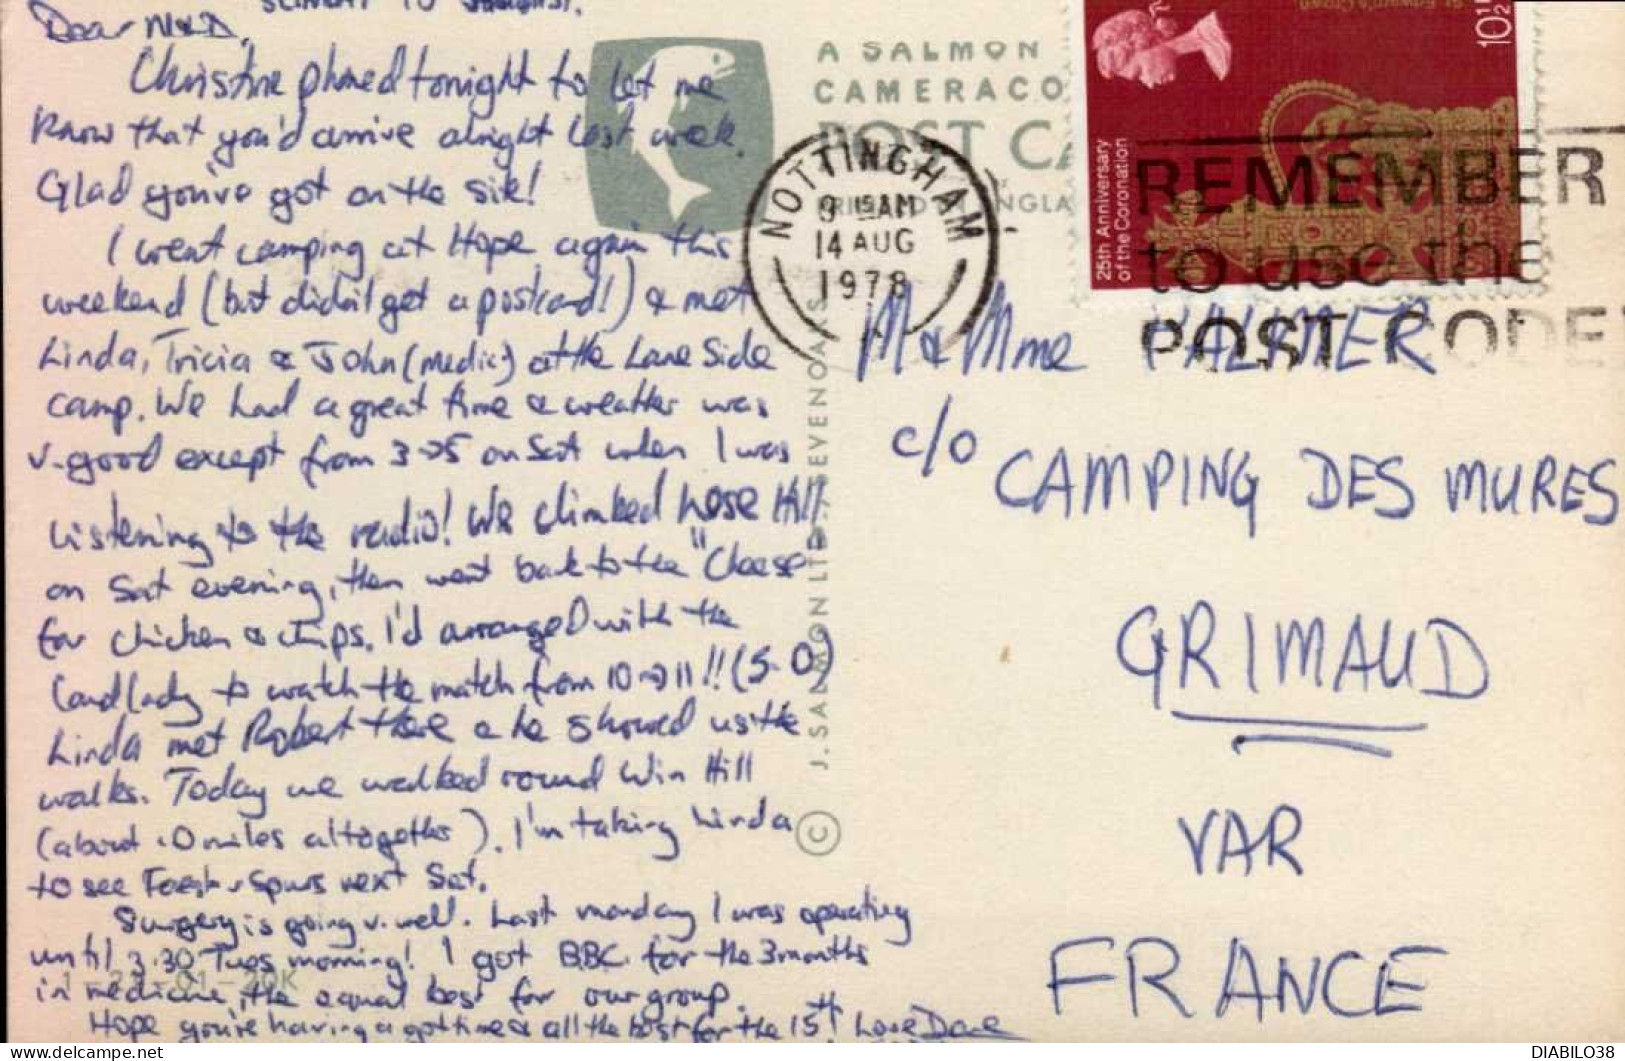 Dear M & D,
Christine phoned tonight to let me
know that you'd arrive alright last week.
Glad you've got on the site!
I went camping at Hope again this
weekend (but didn't get a postcard!) & met
Linda, Tricia & John (medic) at the Lane Side
camp. We had a great time & weather was
v. good except from 3→5 on Sat when I was
listening to the radio! We climbed Lose Hill
on Sat evening, then went back to the "Cheese
for chicken & chips. I'd arranged with the
landlady to watch the match from 10→11!! (5-0)
Linda met Robert there & he showed us the
walks. Today we walked round Win Hill
(about 10 miles altogether). I'm taking Linda
to see Forest v Spurs next Sat.
Surgery is going v. well. Last monday I was operating
until 3.30 Tues morning! I got BBC for the 3 months
in medicine, the equal best for our group.
Hope you're having a good time & all the best for the 15th! Love Dave
A SALMON
CAMERACO
POST CA
© J. SALMON LTD., SEVENOAKS
10½P
25th Anniversary
of the Coronation
St. Edward's Crown
NOTTINGHAM
14 AUG
1978
REMEMBER
to use the
POST CODE
M & Mme PALMER
c/o
CAMPING DES MURES
GRIMAUD
VAR
FRANCE
DIABILO38